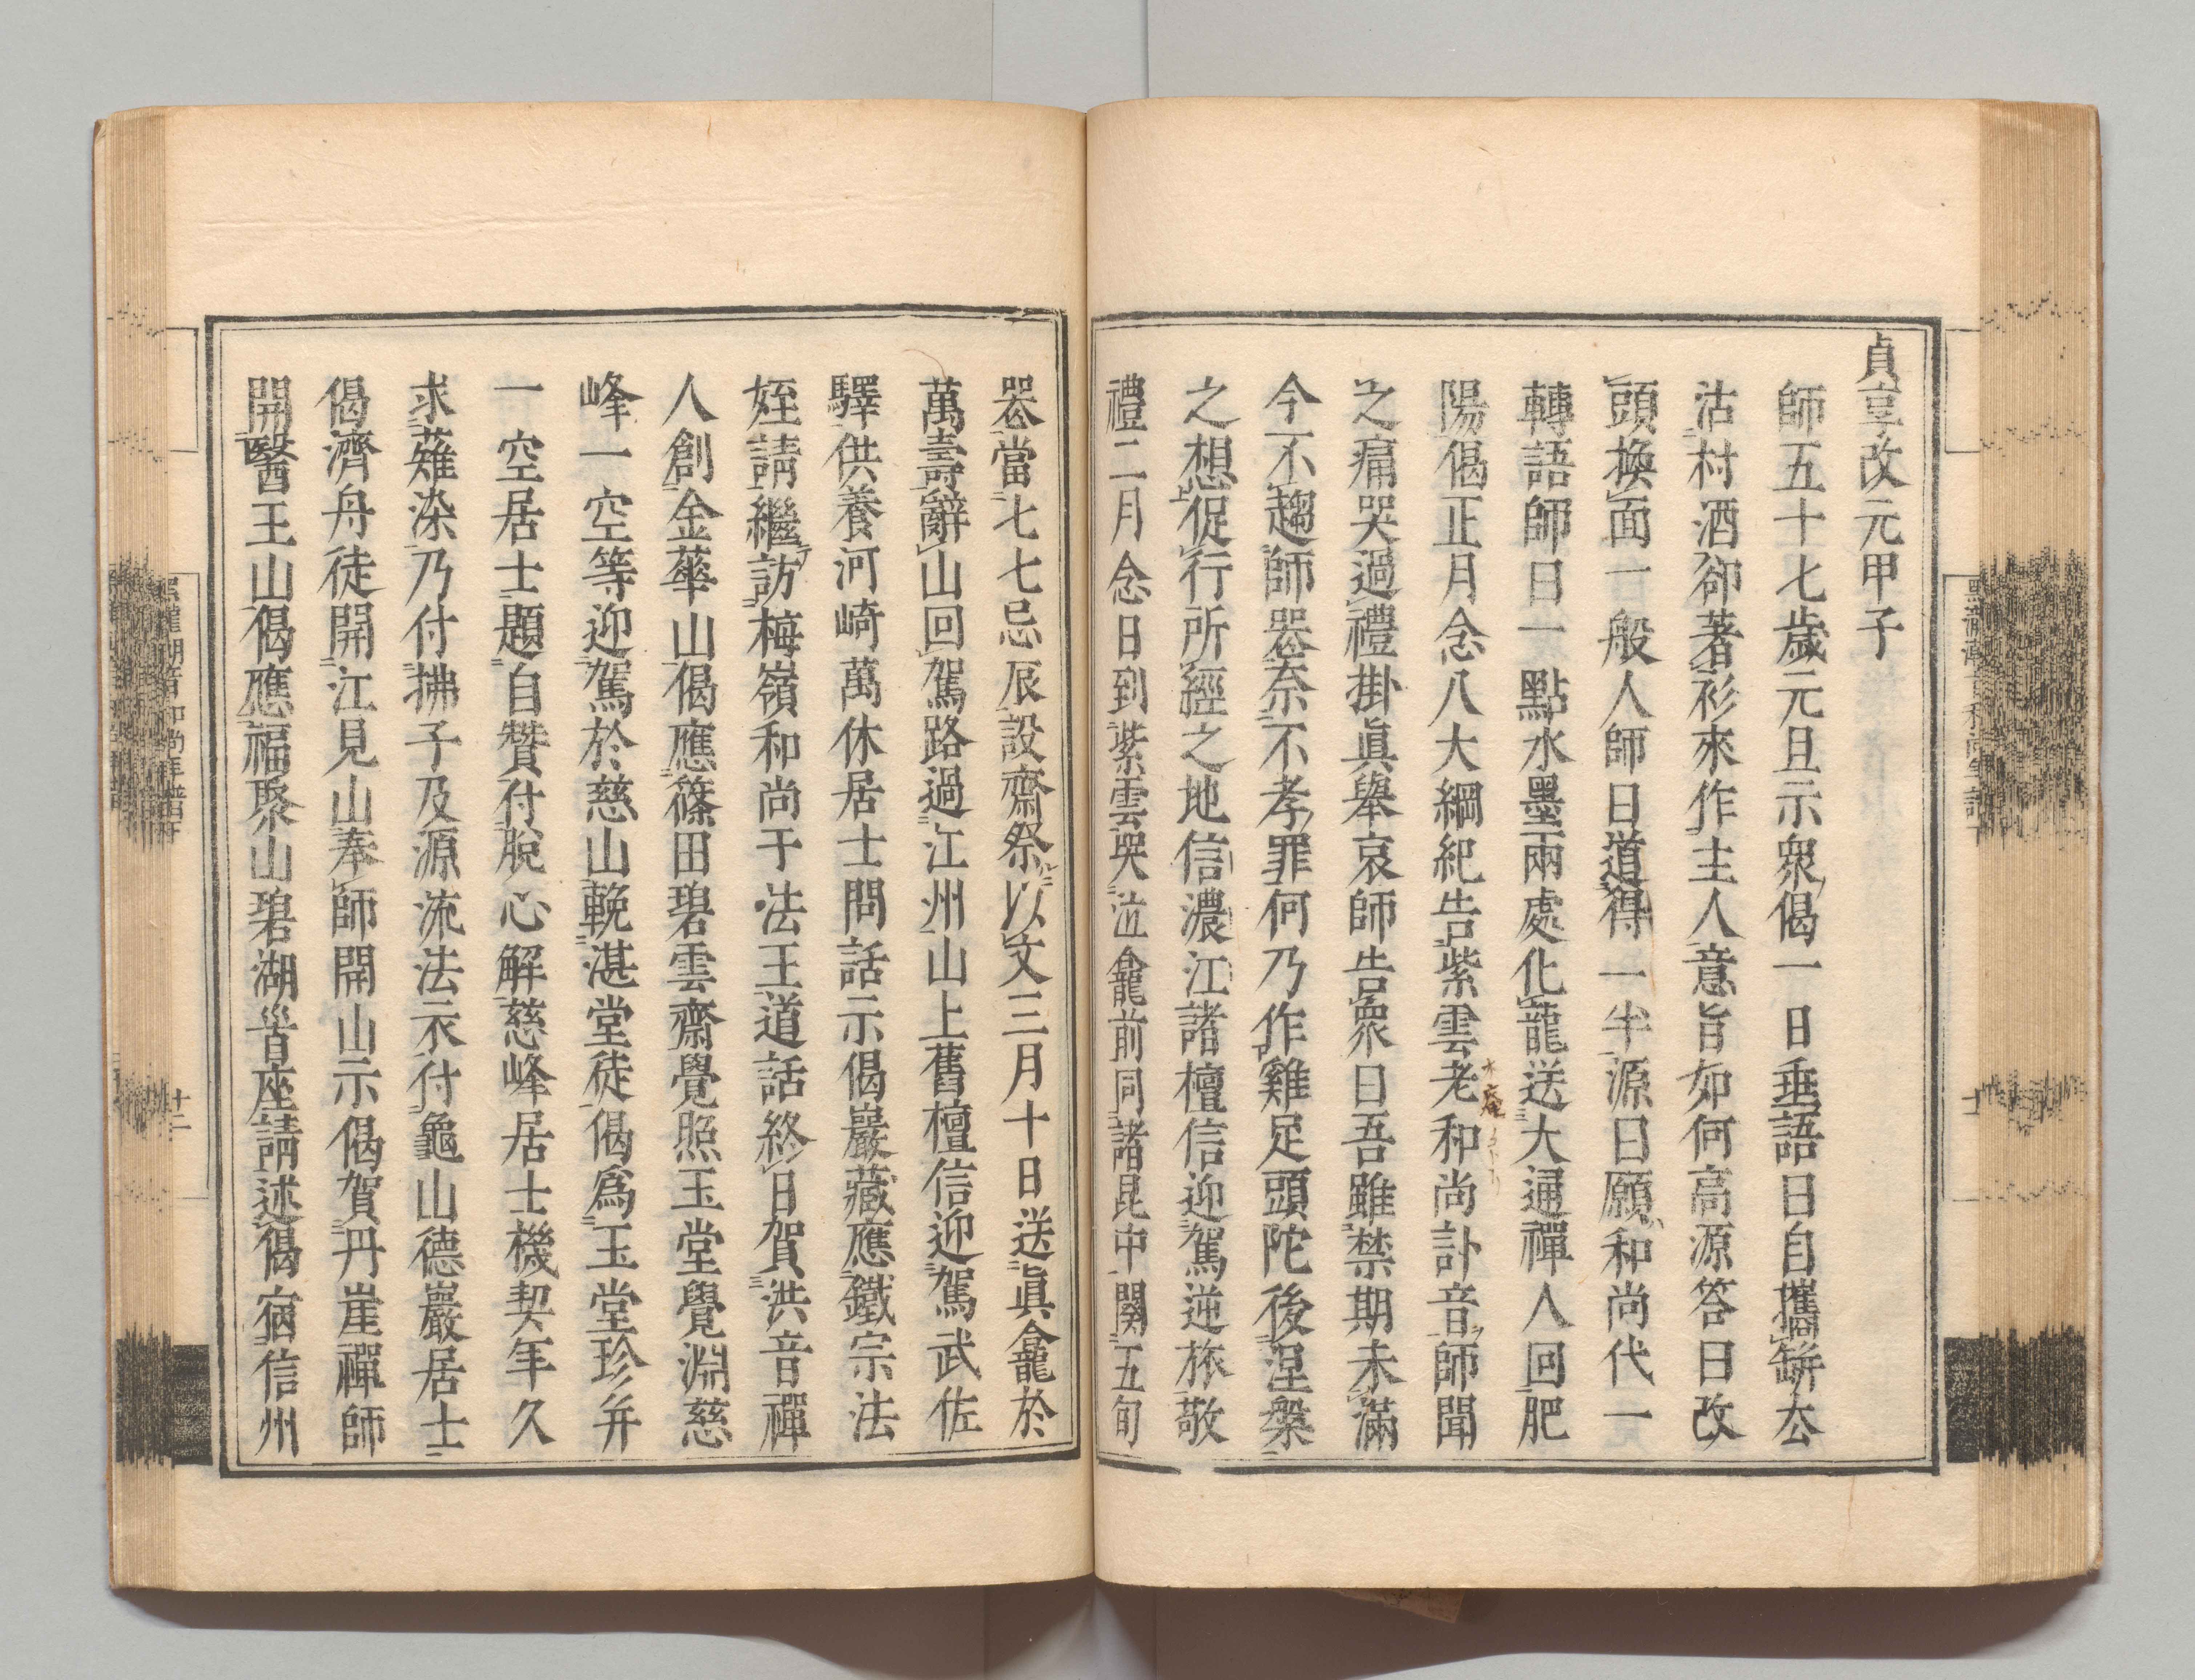 貞享改元甲子
師五十七歲元旦示衆偈一日垂語曰自攜缾去
沽村酒卻著衫來作主人意旨如何高源答曰改
頭換面一般人師曰道得一半源曰願和尚代一
轉語師曰一點水墨兩處化龍送大通禪人回肥
陽偈正月念八大綱紀告紫雲老和尚訃音師聞
之痛哭過禮掛眞舉哀師告衆曰吾雖禁期未滿
今不趨師龕奈不孝罪何乃作雞足頭陀後涅槃
之想促行所經之地信濃江諸檀信迎駕逆旅敬
禮二月念日到紫雲哭泣龕前同諸昆中關五旬
龕當七七忌辰設齋祭以文三月十日送眞龕於
萬壽辭山回駕路過江州山上舊檀信迎駕武佐
驛供養河崎萬休居士問話示偈巖藏應鐵宗法
姪請繼訪梅嶺和尚于法王道話終日賀洪音禪
人創金華山偈應篠田碧雲齋覺照玉堂覺淵慈
峰一空等迎駕於慈山輓湛堂徒偈爲玉堂珍并
一空居士題自贊付脫心解慈峰居士機契年久
求薙染乃付拂子及源流法衣付龜山德巖居士
偈濟舟徒開江見山奉師開山示偈賀丹崖禪師
開醫王山偈應福聚山碧湖首座請述偈宿信州
十二